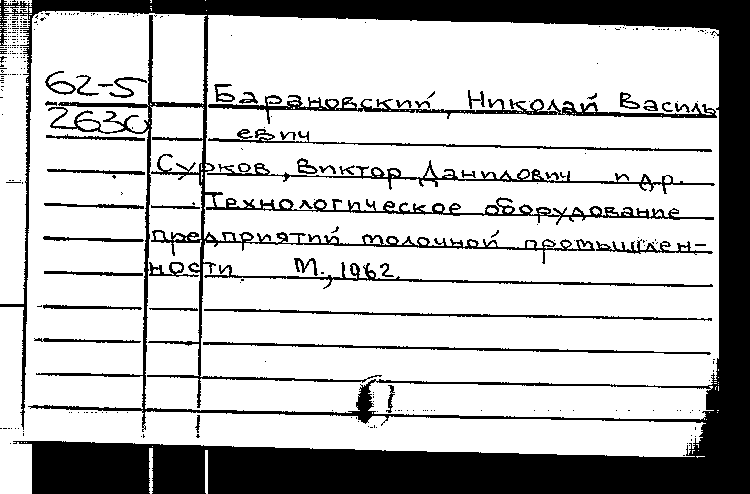 62-5
2630
Барановский, Николай Василь-
евич
Сурков, Виктор Данилович и др.
Технологическое оборудование
предприятий молочной промышлен-
ности М., 1962.